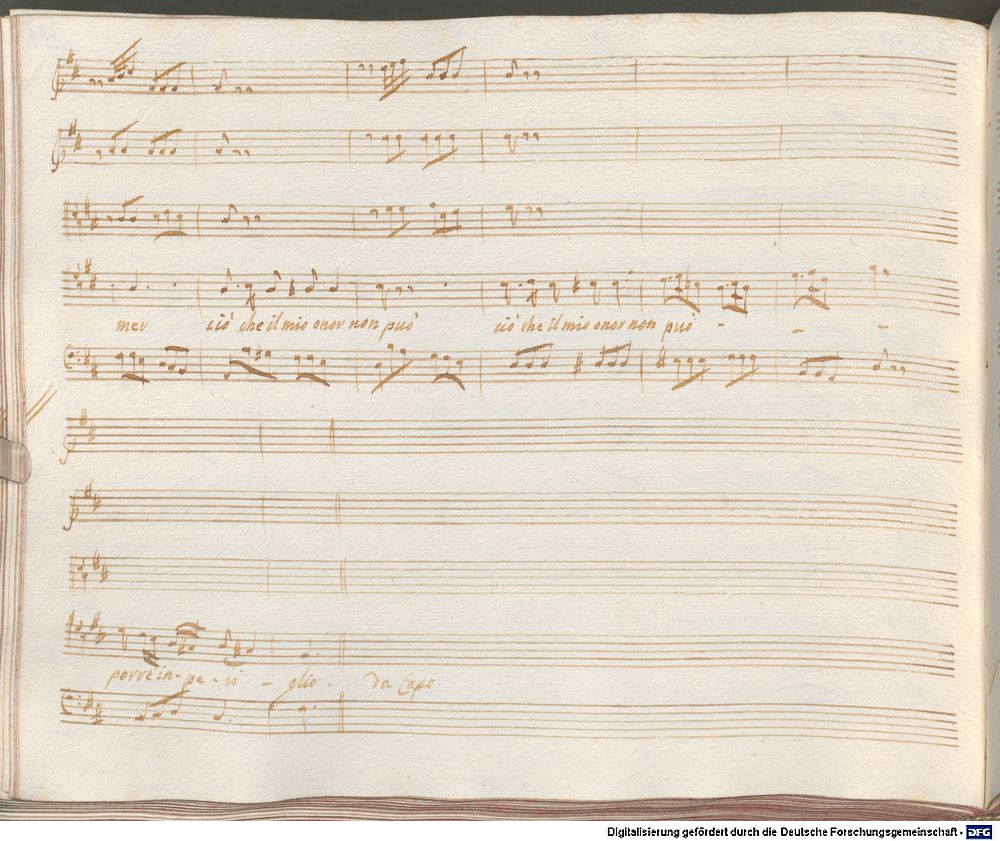 mer ciò che il mio onor non può ciò che il mio onor non può - - -
porre in - pe - ri - glio - Da Capo.
Digitalisierung gefördert durch die Deutsche Forschungsgemeinschaft - DFG